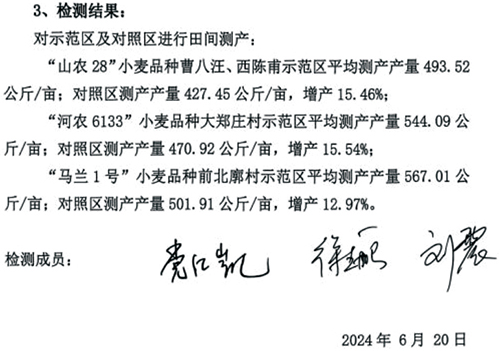 3、检测结果：
对示范区及对照区进行田间测产：
“山农 28”小麦品种曹八汪、西陈甫示范区平均测产产量 493.52
公斤/亩；对照区测产产量 427.45 公斤/亩，增产 15.46%；
“河农 6133”小麦品种大郑庄村示范区平均测产产量 544.09 公
斤/亩；对照区测产产量 470.92 公斤/亩，增产 15.54%；
“马兰 1 号”小麦品种前北廓村示范区平均测产产量 567.01 公
斤/亩；对照区测产产量 501.91 公斤/亩，增产 12.97%。
检测成员： 刘震
2024 年 6 月 20 日